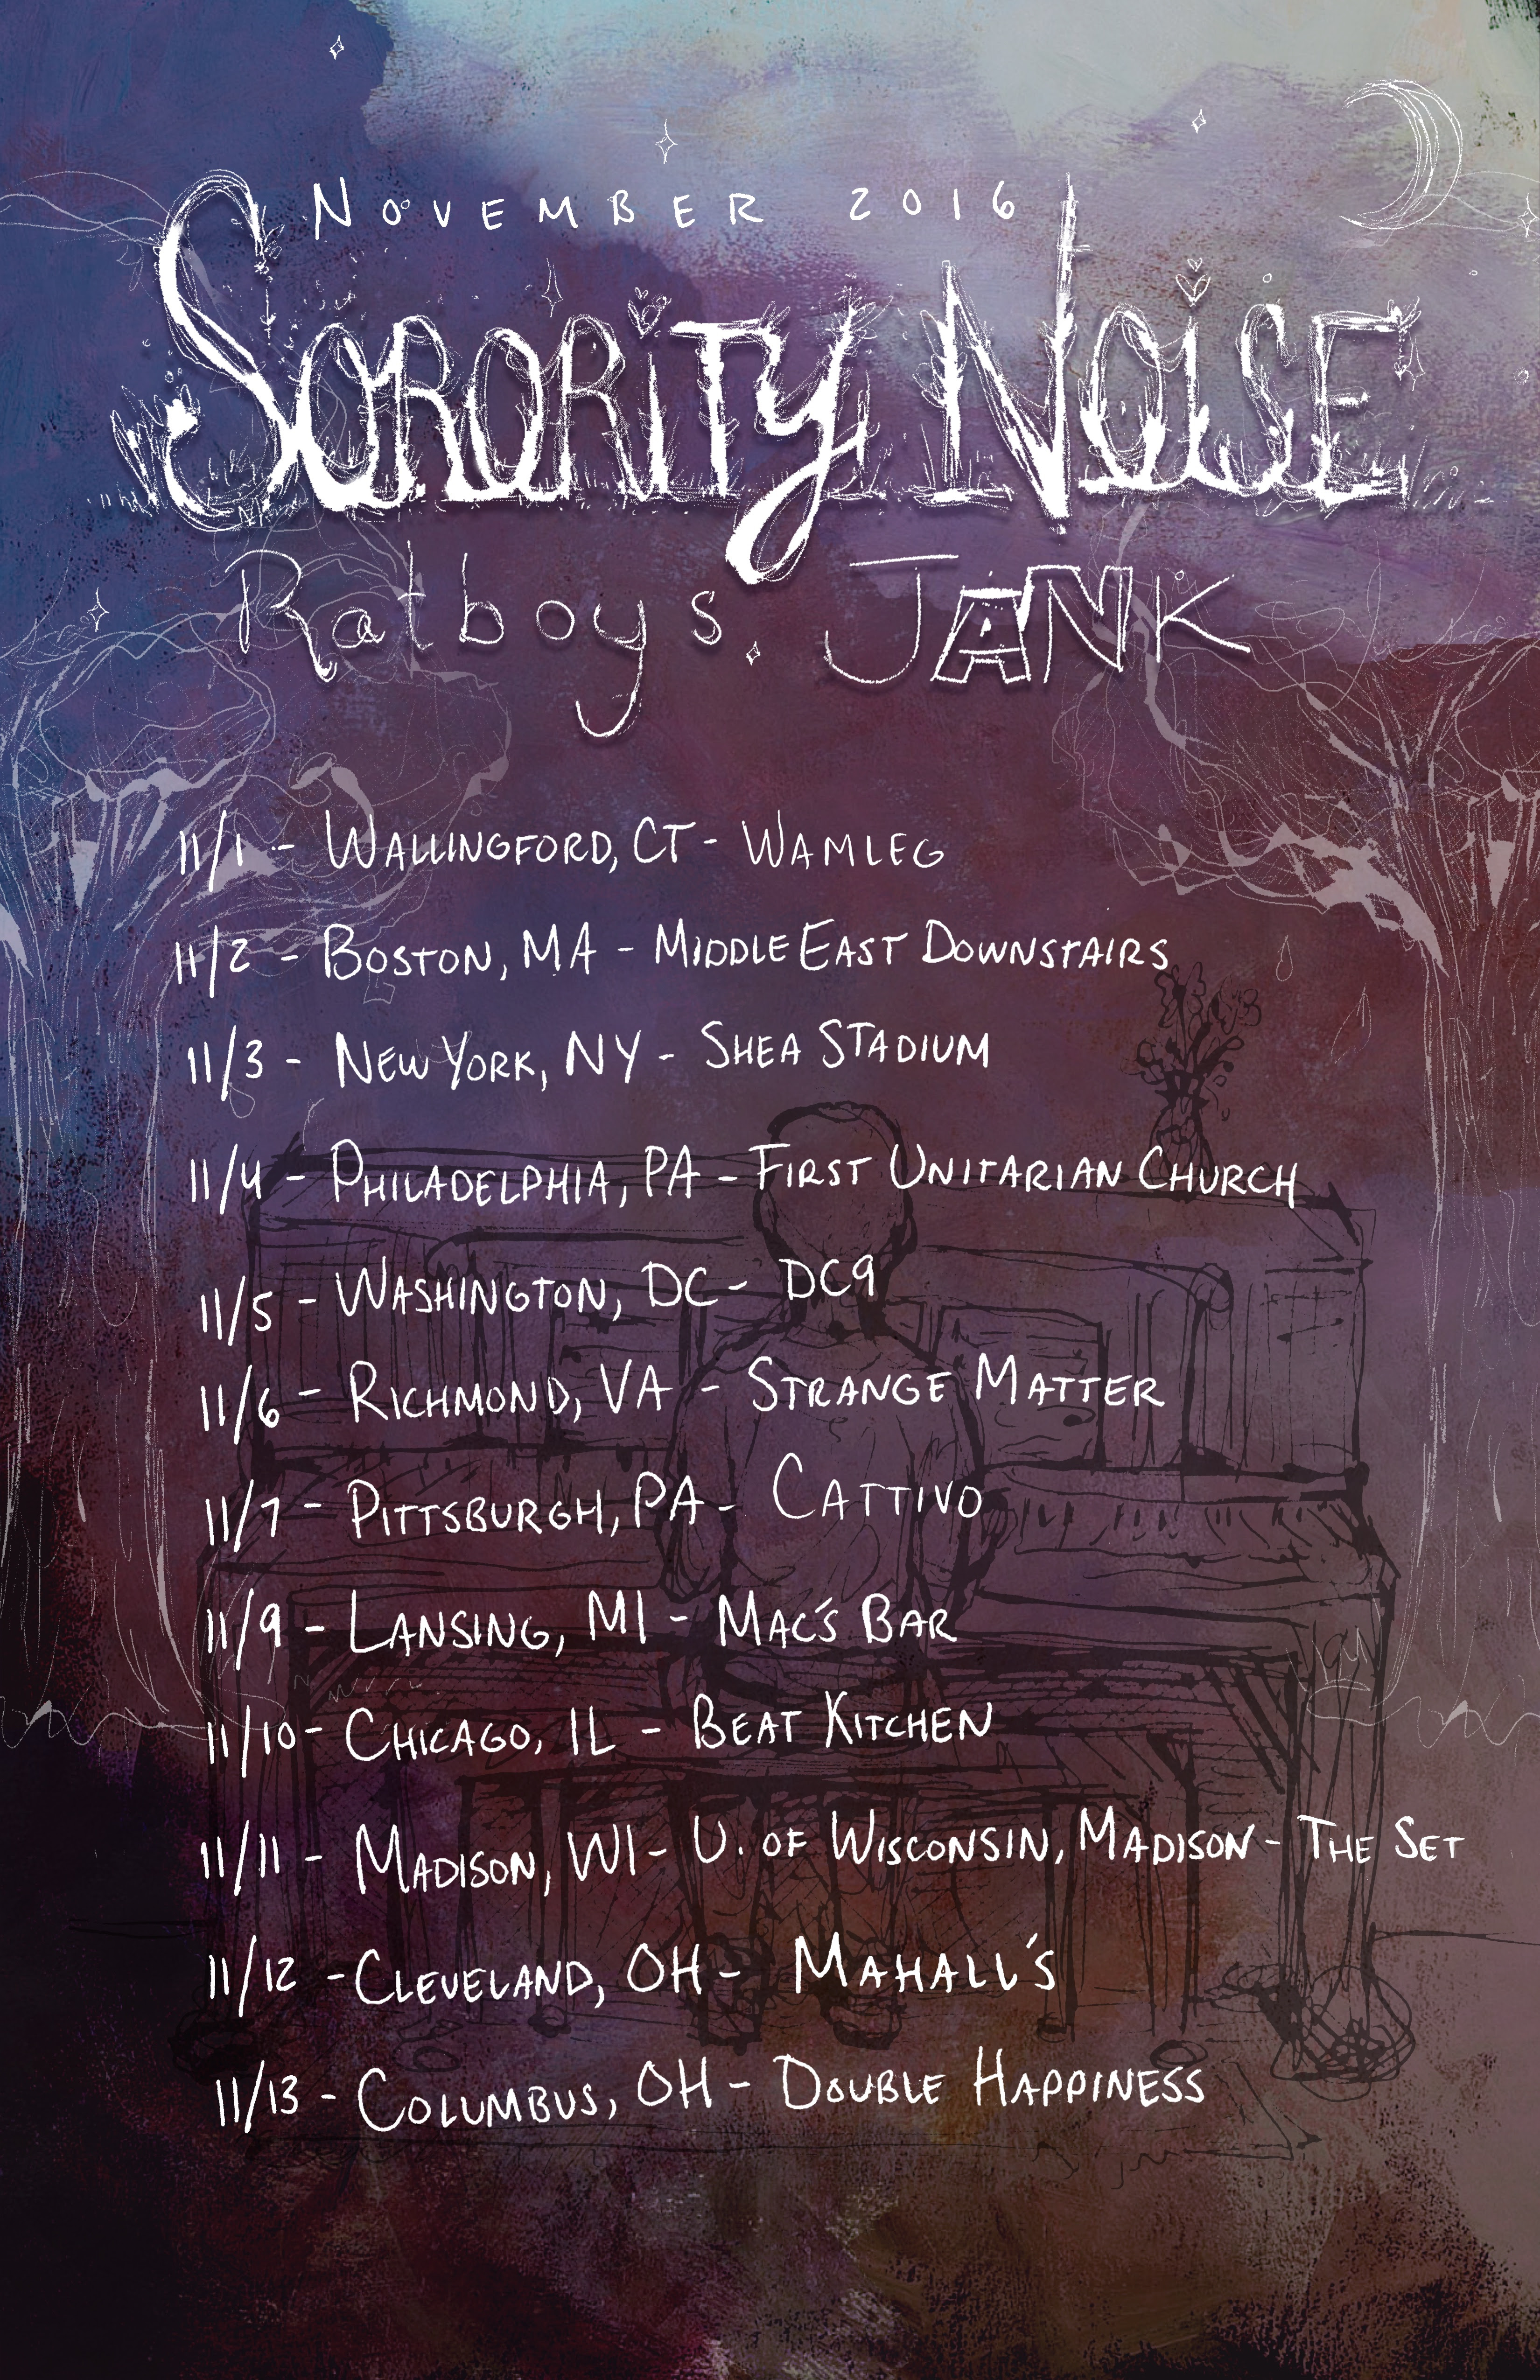 NOVEMBER 2016
SORORITY NOISE
Ratboys. JANK
11/1 - WALLINGFORD, CT - WAMLEG
11/2 - BOSTON, MA - MIDDLE EAST DOWNSTAIRS
11/3 - NEW YORK, NY - SHEA STADIUM
11/4 - PHILADELPHIA, PA - FIRST UNITARIAN CHURCH
11/5 - WASHINGTON, DC - DC9
11/6 - RICHMOND, VA - STRANGE MATTER
11/7 - PITTSBURGH, PA - CATTIVO
11/9 - LANSING, MI - MAC'S BAR
11/10 - CHICAGO, IL - BEAT KITCHEN
11/11 - MADISON, WI - U. OF WISCONSIN, MADISON - THE SET
11/12 - CLEVELAND, OH - MAHALL'S
11/13 - COLUMBUS, OH - DOUBLE HAPPINESS